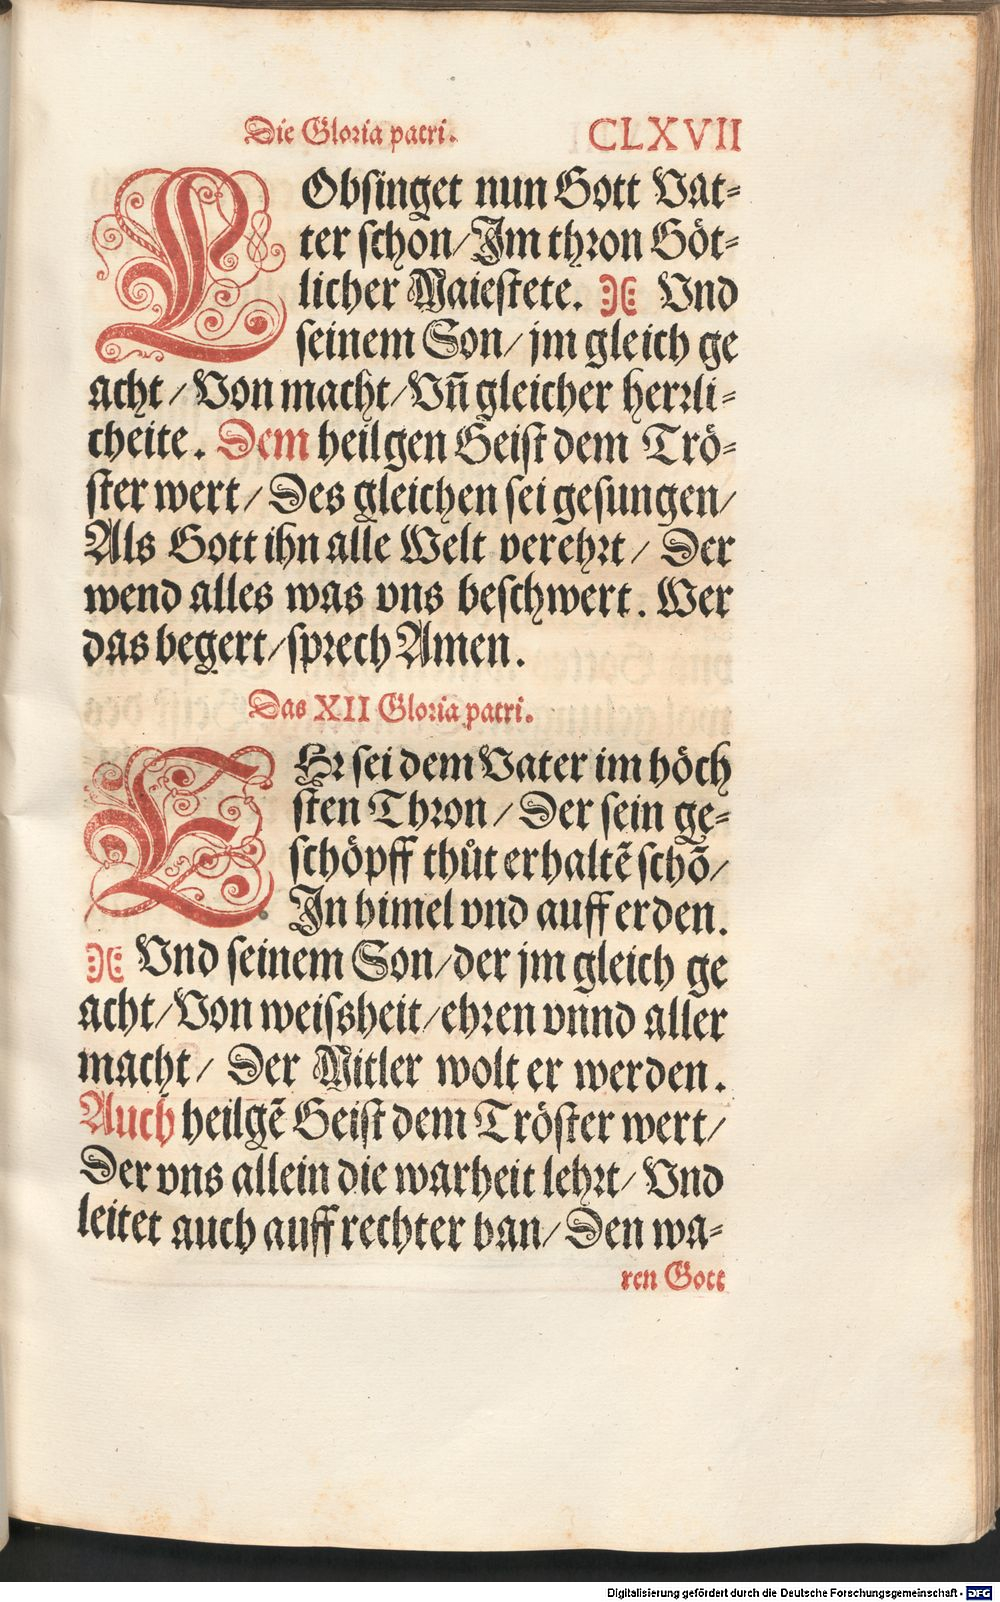 Die Gloria patri. CLXVII
LObsinget nun Gott Vat-
ter schon/ Jm thron Göt-
licher Maiestete. Vnd
seinem Son/ jm gleich ge
acht/ Von macht/ Vñ gleicher herrli-
cheite. Dem heilgen Geist dem Trö-
ster wert/ Des gleichen sei gesungen/
Als Gott ihn alle Welt verehrt/ Der
wend alles was vns beschwert. Wer
das begert/ sprech Amen.
Das XII Gloria patri.
EHr sei dem Vater im höch
sten Thron/ Der sein ge-
schöpff thůt erhaltẽ schõ/
Jn himel vnd auff erden.
Vnd seinem Son/ der jm gleich ge
acht/ Von weißheit/ ehren vnnd aller
macht/ Der Mitler wolt er werden.
Auch heilgẽ Geist dem Tröster wert/
Der vns allein die warheit lehrt/ Vnd
leitet auch auff rechter ban/ Den wa-
ren Gott
Digitalisierung gefördert durch die Deutsche Forschungsgemeinschaft - DFG